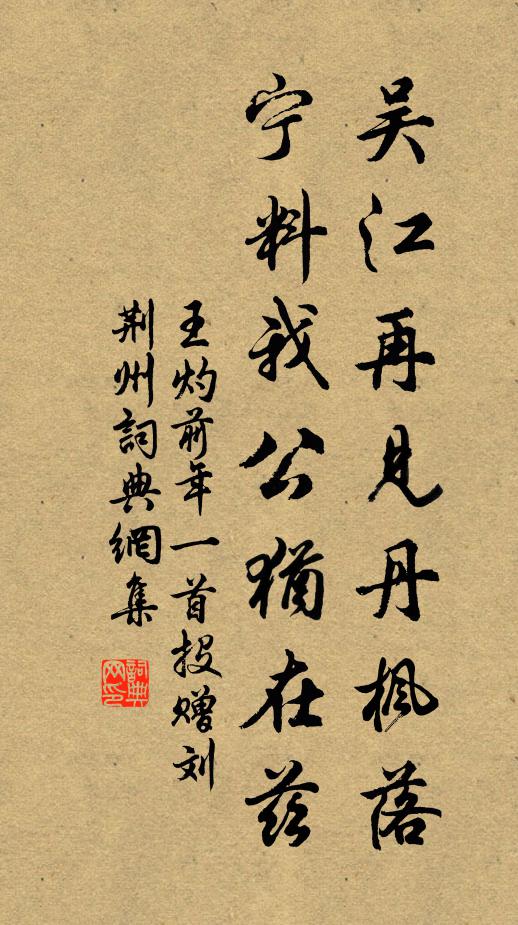 吴江再见丹枫落
宁料我公犹在兹
王灼前年一首投赠刘
荆州詞典網集
詞典网印